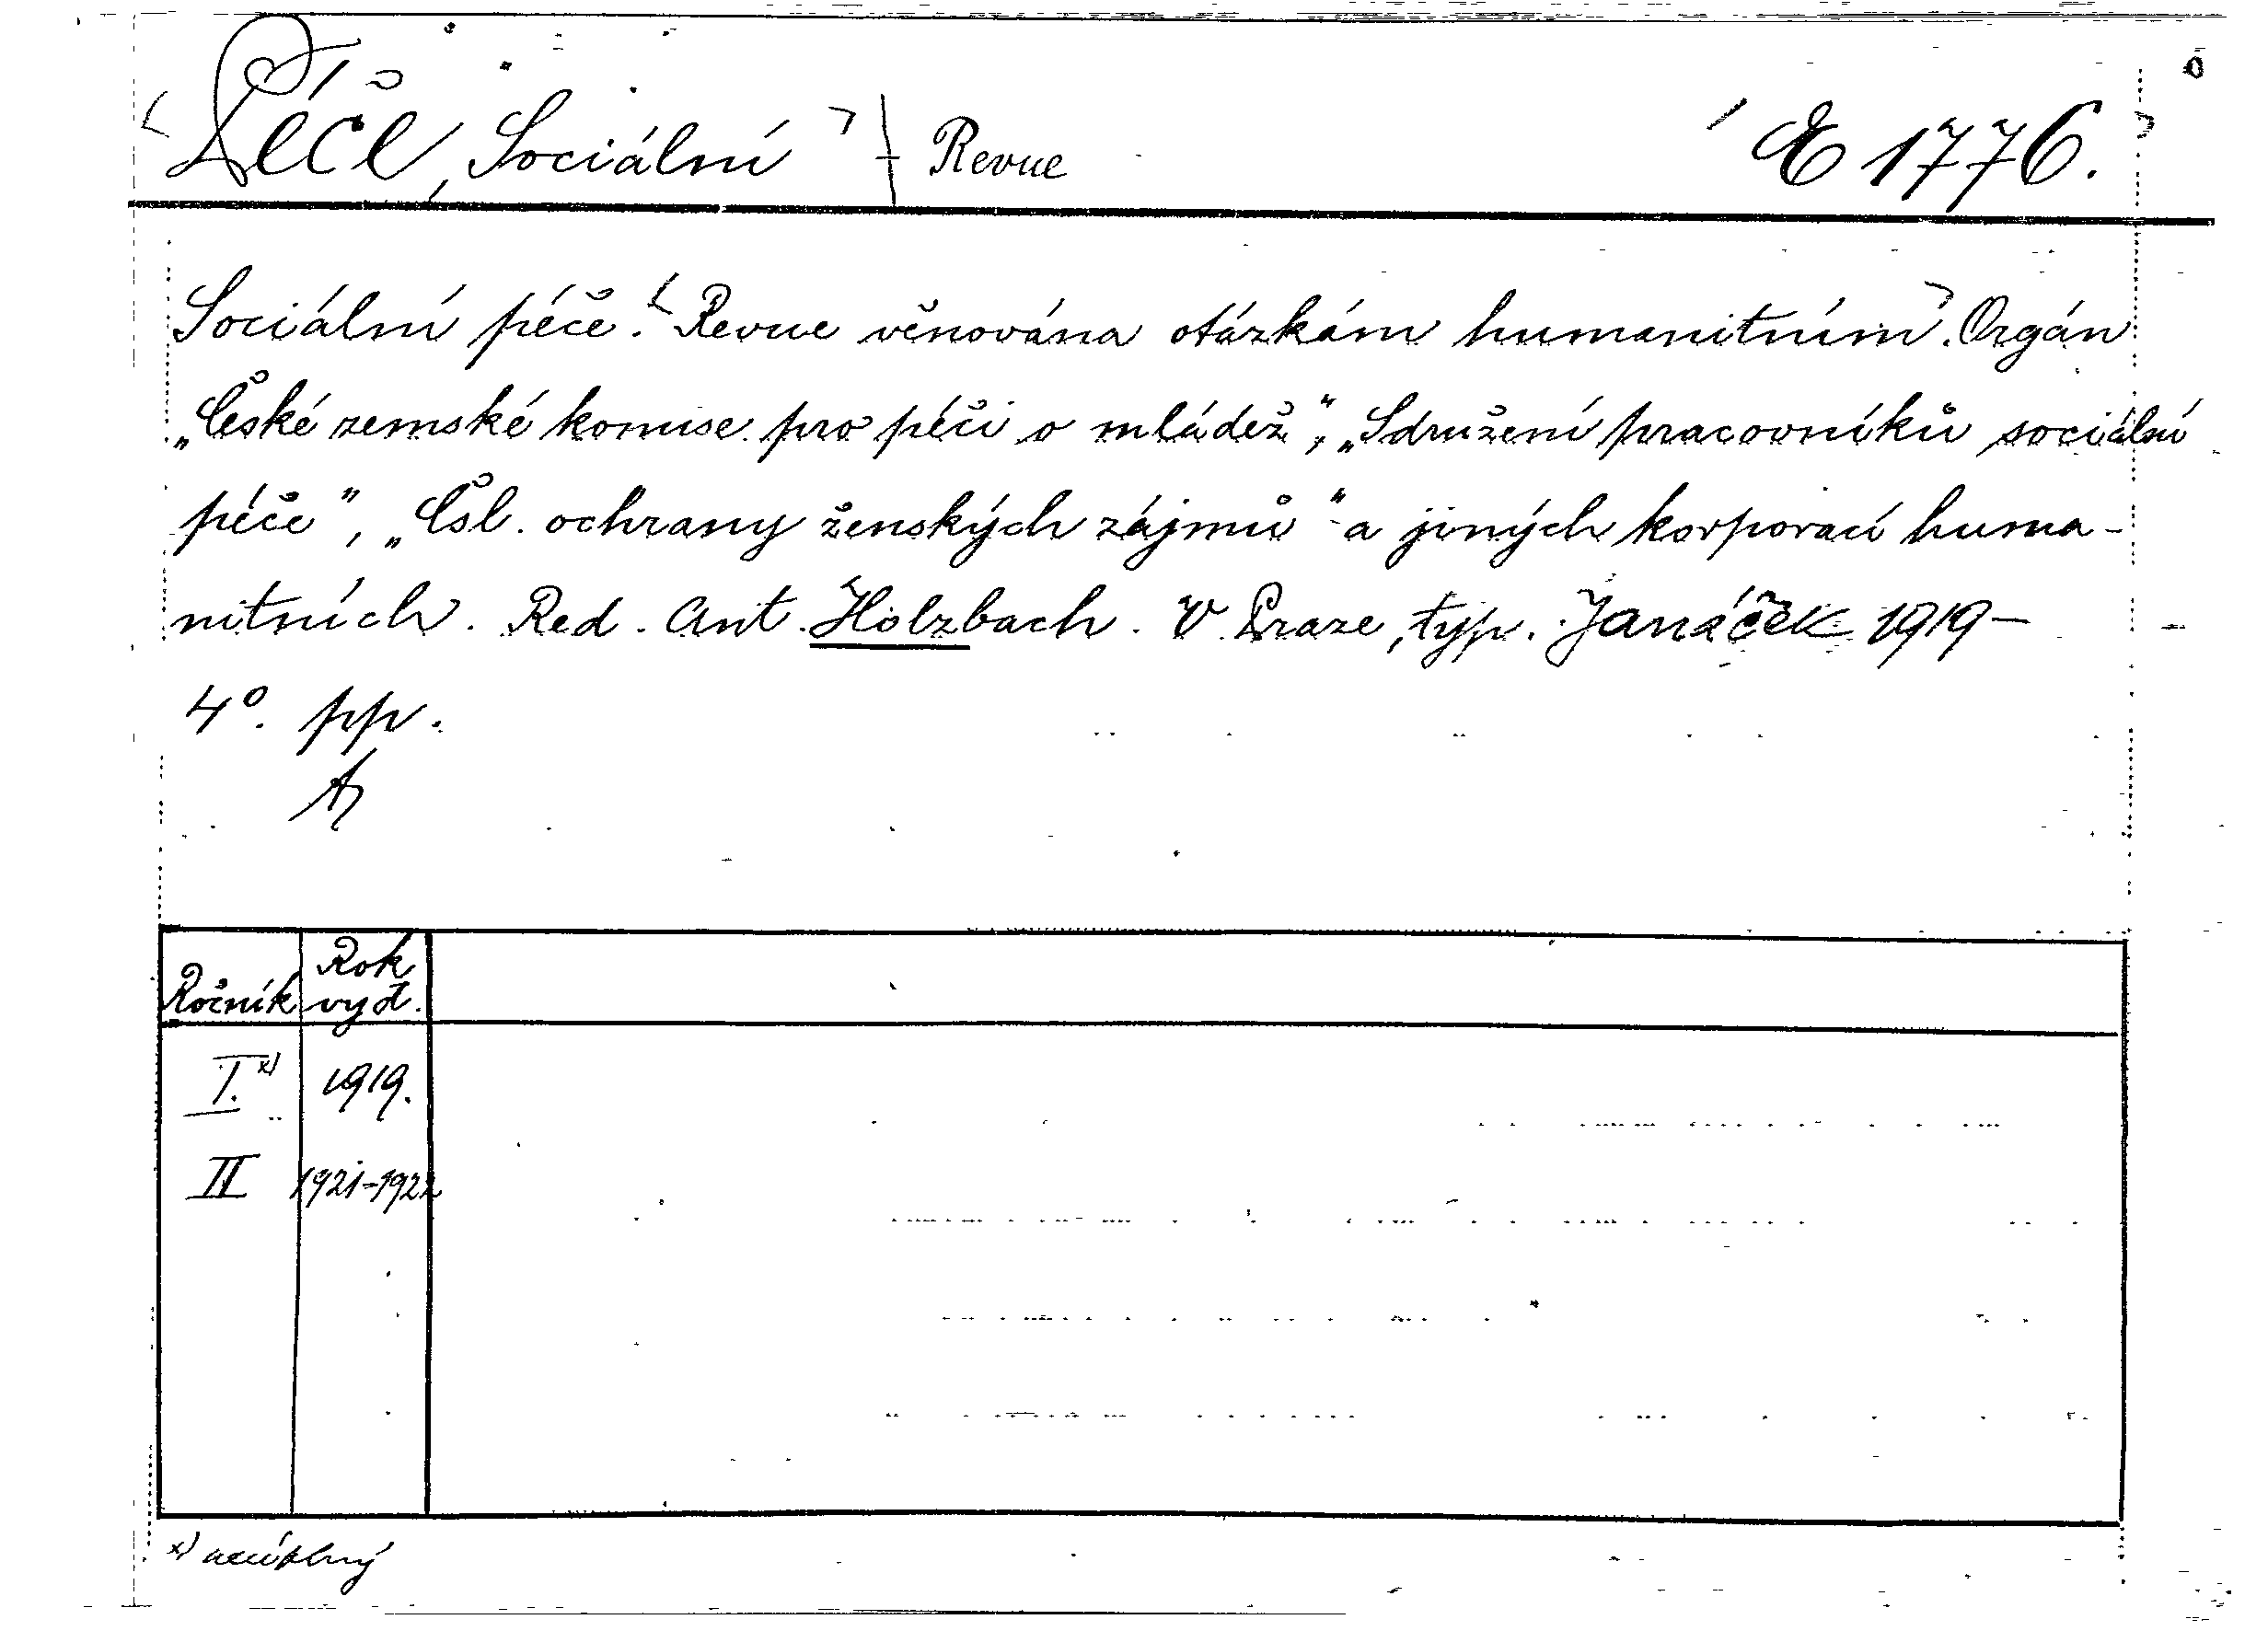 Péče, Sociální Revue E 1776.
Sociální péče. Revue věnována otázkám humanitním. Orgán
„České zemské komise pro péči o mládež“, „Sdružení pracovníků sociální
péče“, „Čsl. ochrany ženských zájmů“ a jiných korporací huma-
nitních. Red. Ant. Holzbach. V Praze, typ. Janáček 1919–
4°. pp.
Ročník Rok vyd.
I. x) 1919.
II 1921-1922
x) neúplný